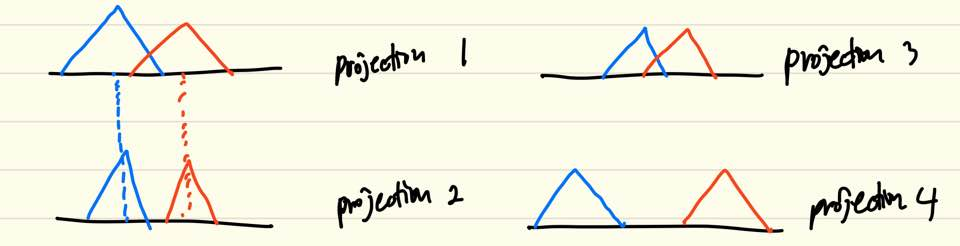 projection 1
projection 3
projection 2
projection 4